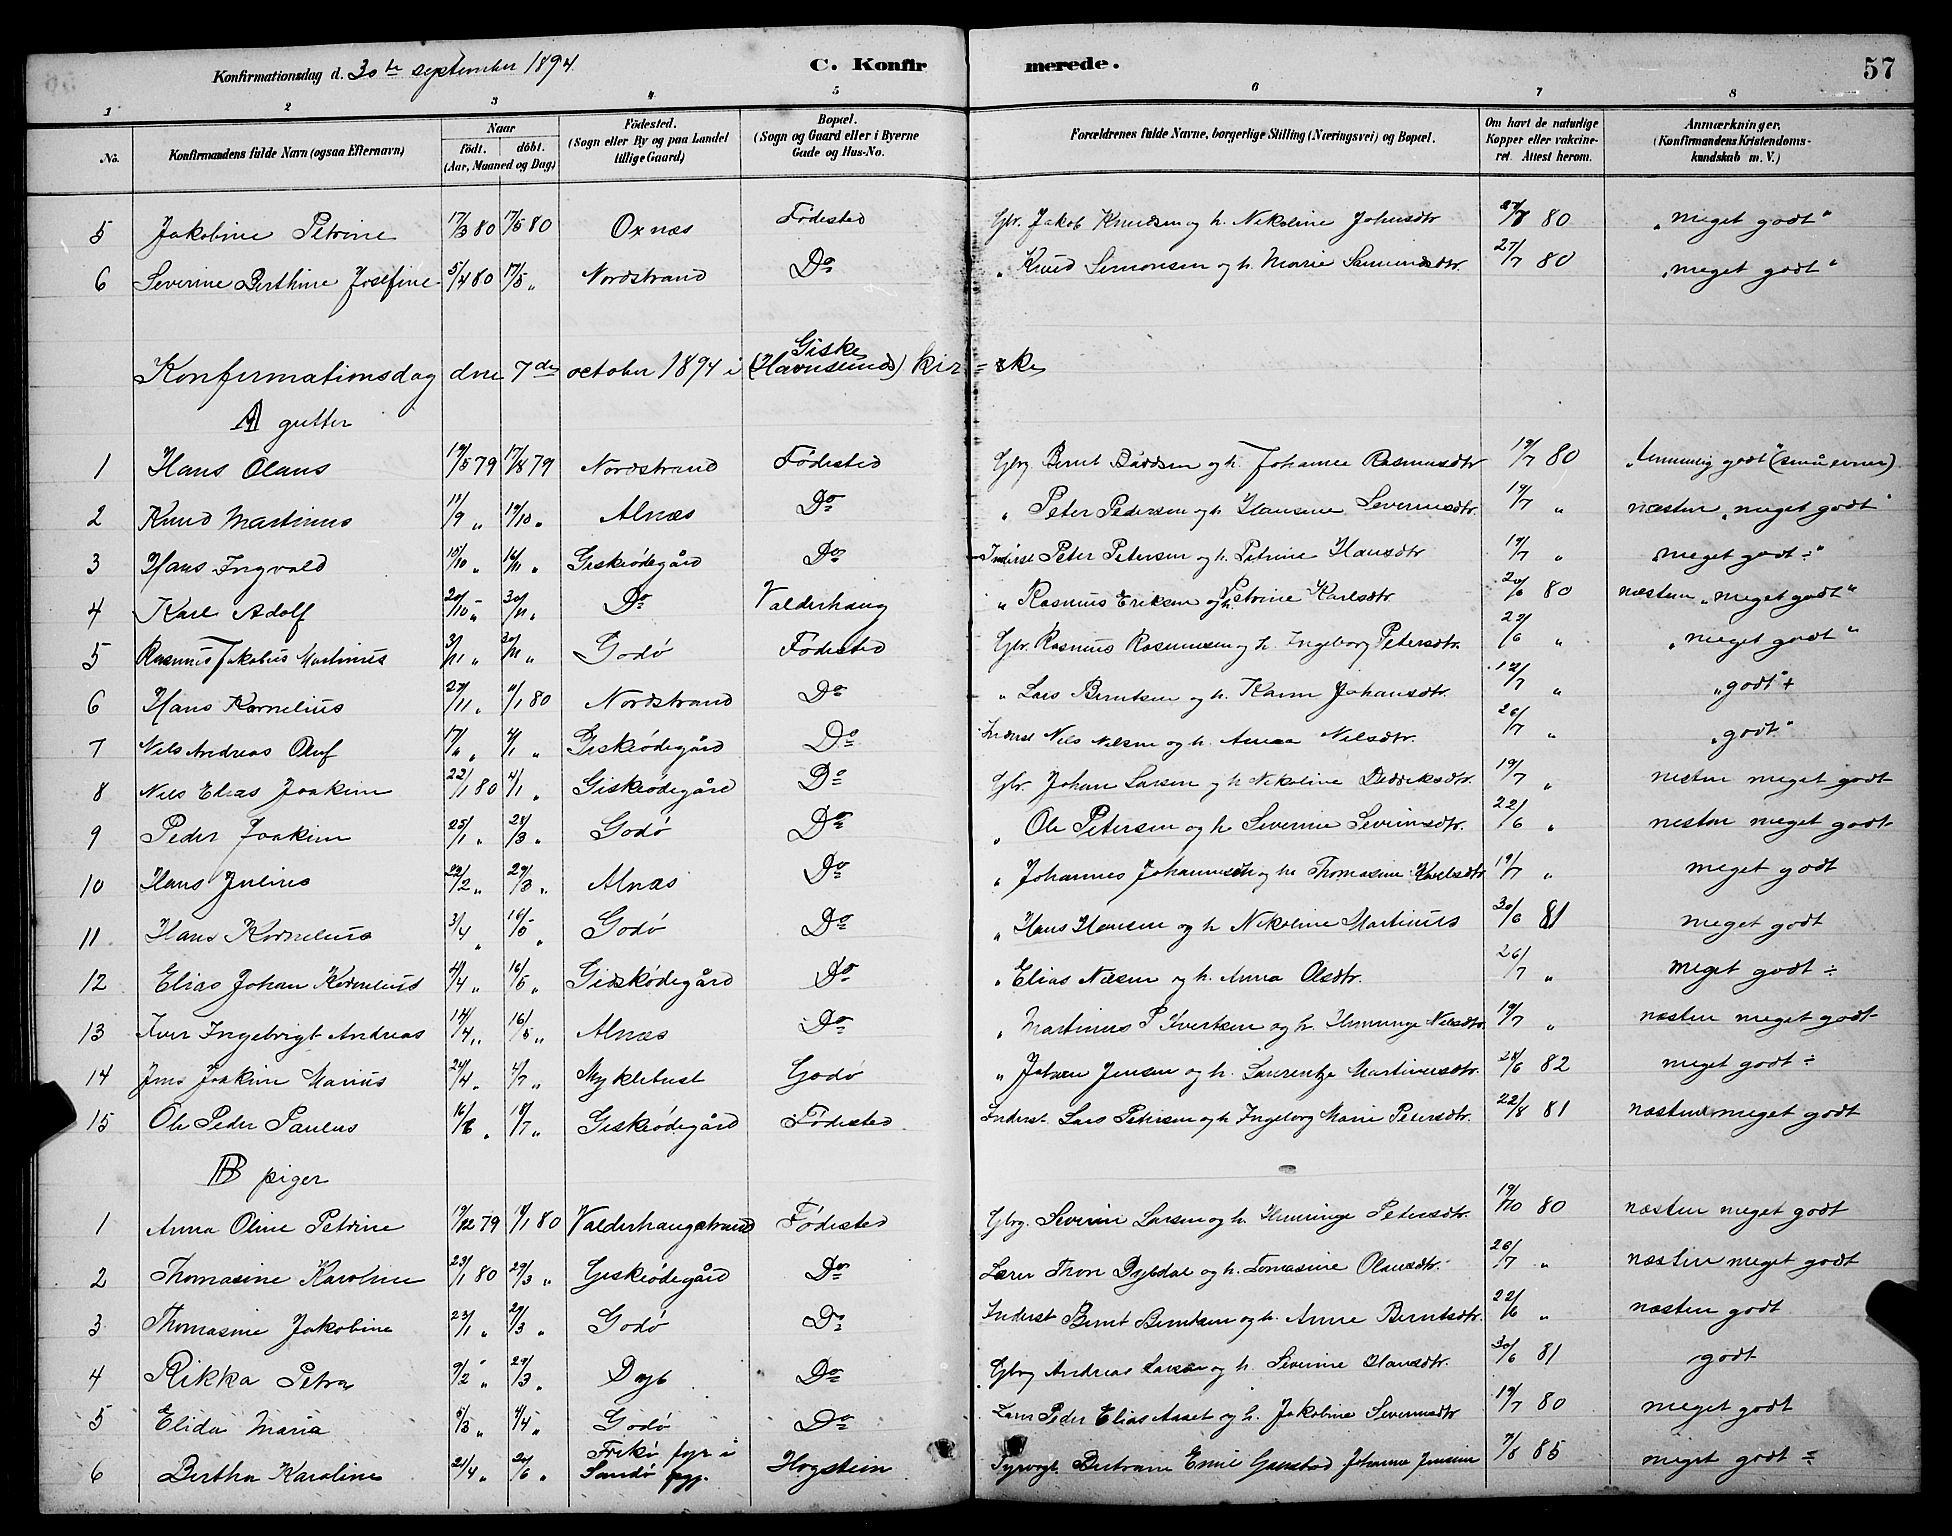 Konfirmationsdag d. 30te september 1894. C. Konfirmerede. 57
1 2 3 4 5 6 7 8
No. Konfirmandens fulde Navn (ogsaa Efternavn) Naar født. døbt. (Aar, Maaned og Dag) Fødested. (Sogn eller By og paa Landet tillige Gaard) Bopæl. (Sogn og Gaard eller i Byerne Gade og Hus-No. Forældrenes fulde Navne, borgerlige Stilling (Næringsvei) og Bopæl. Om havt de naturlige Kopper eller vakcineret. Attest herom. Anmærkninger, (Konfirmandens Kristendomskundskab m. V.)
5 Jakobine Petrine 17/3 80 17/5 80 Oxnæs Fødested Gbr. Jakob Knudsen og h. Nikoline Johnsdtr 27/7 80 "meget godt"
6 Severine Berthine Josefine 5/4 80 17/5 " Nordstrand Do " Knud Simonsen og h. Marie Samundsdtr. 27/7 80 "meget godt"
Konfirmationsdag den 7de october 1894 i Giske (Havnsund) kir=ke
A gutter
1 Hans Olaus 19/5 79 17/8 79 Nordstrand Fødested Gbrg Bernt Bårdsen og h. Johanne Rasmusdtr 19/7 80 "temmelig godt" (små evner)
2 Knud Martinus 11/9 " 19/10 " Alnæs Do " Peter Pedersen og h. Hansine Severinsdtr. 19/7 " næsten "meget godt"
3 Hans Ingvald 10/10 " 16/11 " Giskeødegård Do Inderst Peter Petersen og h. Petrine Hansdtr 19/7 " "meget godt ÷"
4 Karl Adolf 20/10 " 30/11 " Do Valderhaug " Rasmus Eriksen og h. Petrine Karlsdtr 20/6 80 næsten "meget godt"
5 Rasmus Jakobus Martinus 3/11 " 30/11 " Godø Fødested Gbr. Rasmus Rasmussen og h. Ingeborg Petersdtr. 22/6 " "meget godt"
6 Hans Kornelius 27/11 " 11/1 80 Nordstrand Do " Lars Berntsen og h. Karen Johansdtr. 12/7 " "godt" +
7 Nils Andreas Oluf " 4/1 " Giskeødegård Do Inderst Nils Nilsen og h. Anna Nilsdtr. 26/7 " "godt"
8 Nils Elias Joakim 22/1 80 4/1 " Giskeødegård Do Gbr. Johan Larsen og h Nikoline Didriksdtr. 19/7 " nesten meget godt
9 Peder Joakim 25/1 " 28/3 " Godø Do " Ole Petersen og h Severine Severinsdtr. 22/6 " nesten meget godt
10 Hans Julius 22/2 " 29/3 " Alnæs Do " Johannes Johannesen og h. Thomasine Karlsdtr 19/7 " meget godt
11 Hans Kornelius 3/4 " 16/5 " Godø Do " Hans Hansen og h Nikoline Martinus 30/6 81 meget godt
12 Elias Johan Kornelius 4/4 " 16/5 " Gidskødegård Do " Elias Nilsen og h. Anna Olsdtr. 26/7 " meget godt ÷
13 Iver Ingebrigt Andreas 14/4 " 16/5 " Alnæs Do " Martinus P Ivertsen og h. Henninge Nilsdtr 19/7 " næsten meget godt
14 Jens Joakim Marius 24/4 " 4/7 " Myklebust Godø " Johan Jensen og h. Laurentze Martinusdtr. 28/6 82 meget godt ÷
15 Ole Peder Paulus 16/6 " 18/7 " Giskeødegård Fødested Inderst. Lars Petersen og h Ingeborg Marie Petersdtr. 22/8 81 næsten meget godt
B piger
1 Anna Oline Petrine 19/12 79 1/1 80 Valderhaugstrand Fødested Gbrg. Severin Larsen og h. Henninge Petersdtr. 19/10 80 næsten meget godt
2 Thomasine Karoline 23/1 80 29/3 " Giskeødegård Do Lærer Thon Dybdal og h. Tomasine Olausdtr. 26/7 " næsten meget godt
3 Thomasine Jakobine 23/1 " 29/3 " Godø Do Inderst Bernt Berntsen og h. Anne Berntsdtr. 22/6 " næsten godt
4 Rikka Petra 9/2 " 29/3 " Dyb Do Gbrg Andreas Larsen og h. Severine Hansdtr. 30/6 81 godt
5 Elida Maria 5/3 " 4/4 " Godø Do Peder Elias Aaset og h. Jakobine Severinsdtr 19/7 80 meget godt
6 Bertha Karoline 21/4 " 20/6 " fyr i Sandø Hogstein Fyrvogt Bertram Emil Johanna Jensen 7/8 85 meget godt ÷